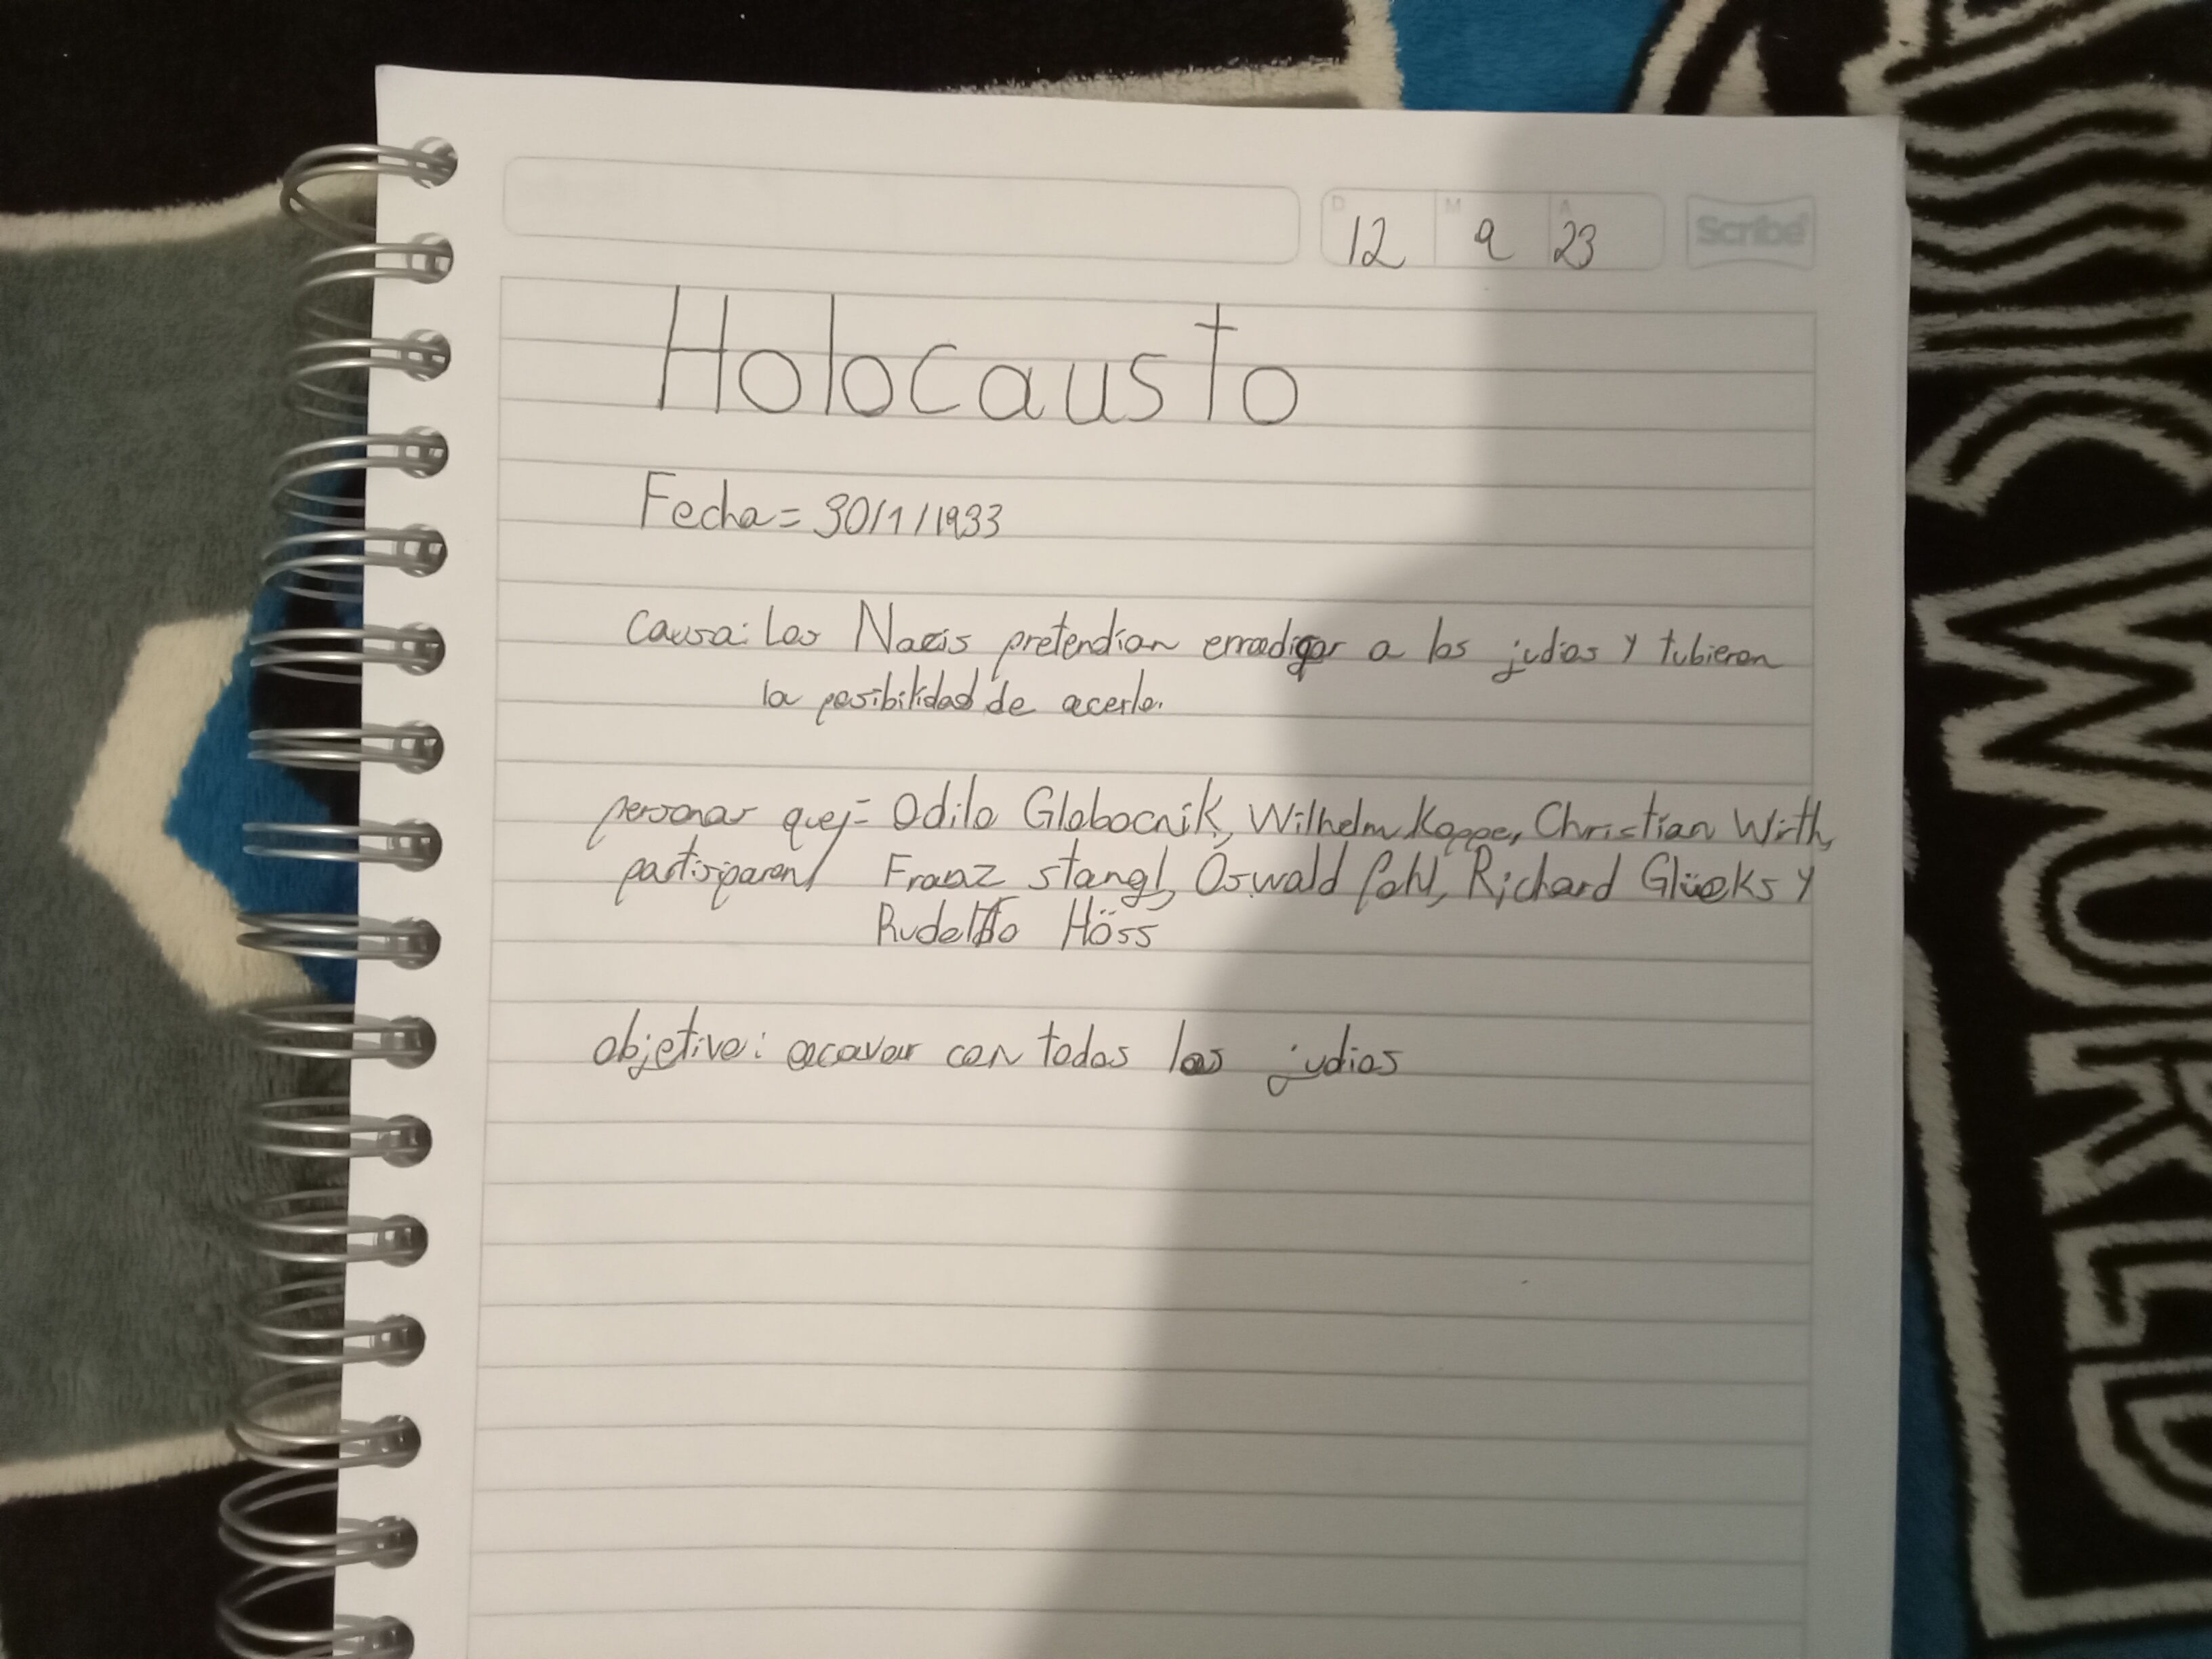 D 12 M 9 A 23 Scribe
Holocausto
Fecha = 30/1/1933
Causa: Los Nazis pretendian erradigar a los judios y tubieron
la posibilidad de acerlo.
personas que = Odilo Globocnik, Wilhelm Koppe, Christian Wirth,
partisiparon Franz stangl, Oswald Pohl, Richard Glüeks y
Rudolfo Höss
objetivo: acavar con todos los judios
WORLD